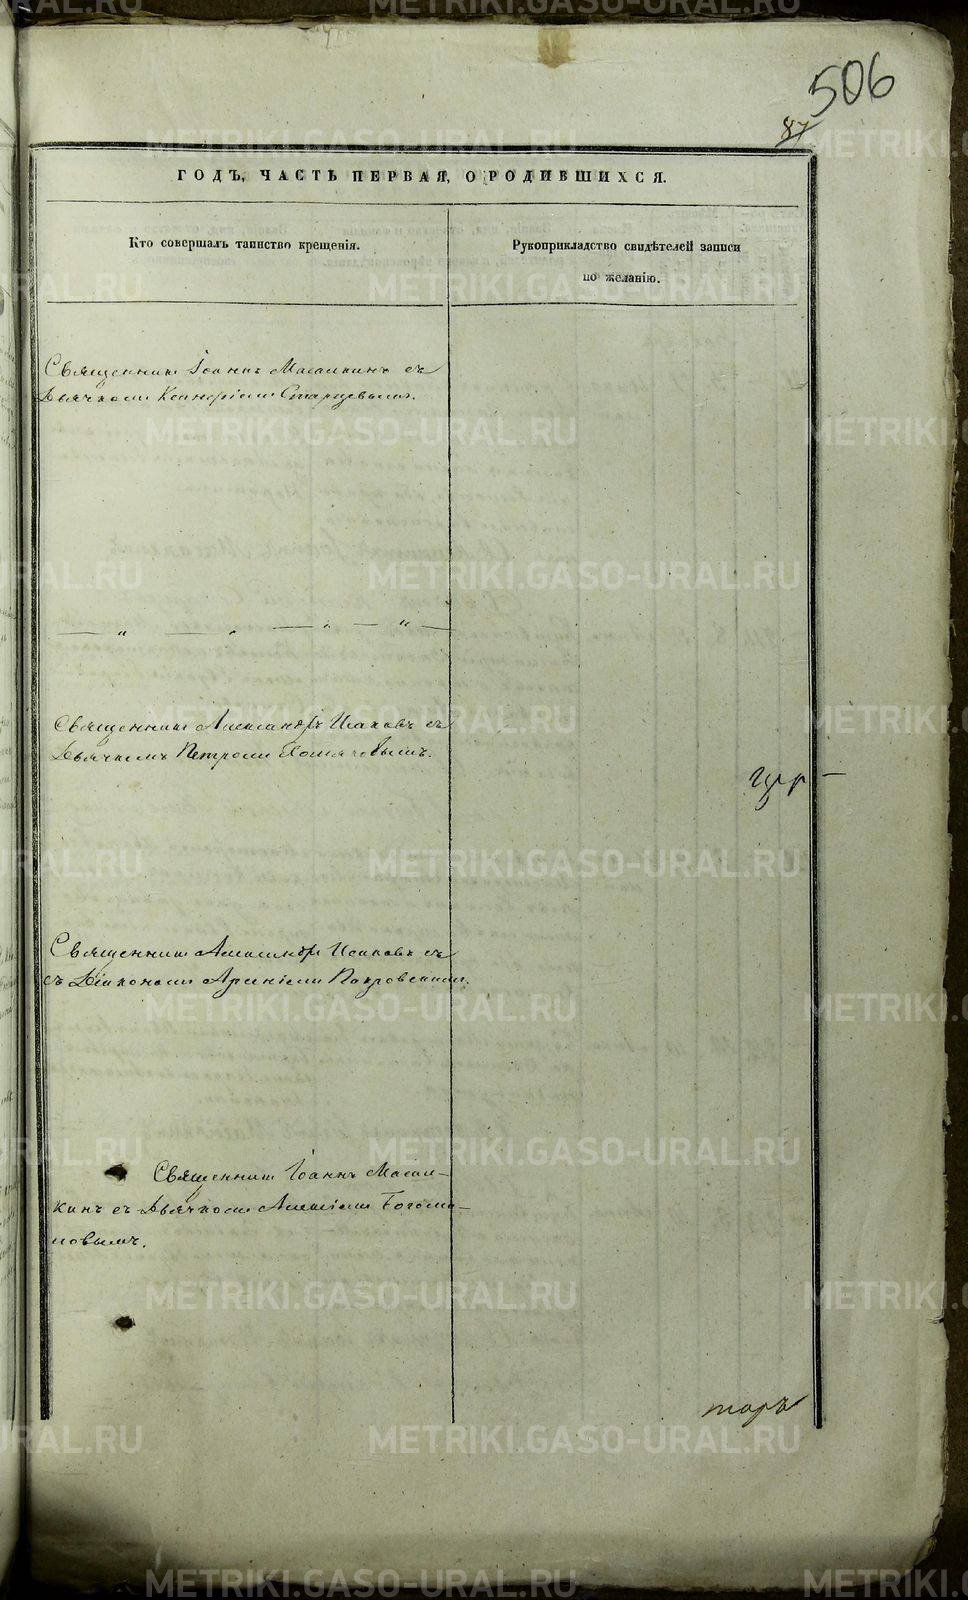 506
87
ГОДЪ, ЧАСТЬ ПЕРВАЯ, О РОДИВШИХСЯ.
Кто совершалъ таинство крещенія.
Рукоприкладство свидѣтелей записи
по желанію.
Священникъ Іоаннъ Масалкинъ съ
Дьячкомъ Старцевымъ.
— „ — „ — „ — „ —
Священникъ Александръ Исаковъ съ
Дьячкомъ Петромъ
Священникъ Александръ Исаковъ съ
съ Діакономъ Арсеніемъ Покровскимъ.
Священникъ Іоаннъ Масал-
кинъ съ Дьячкомъ Алексіемъ Богомо-
ловымъ.
METRIKI.GASO-URAL.RU